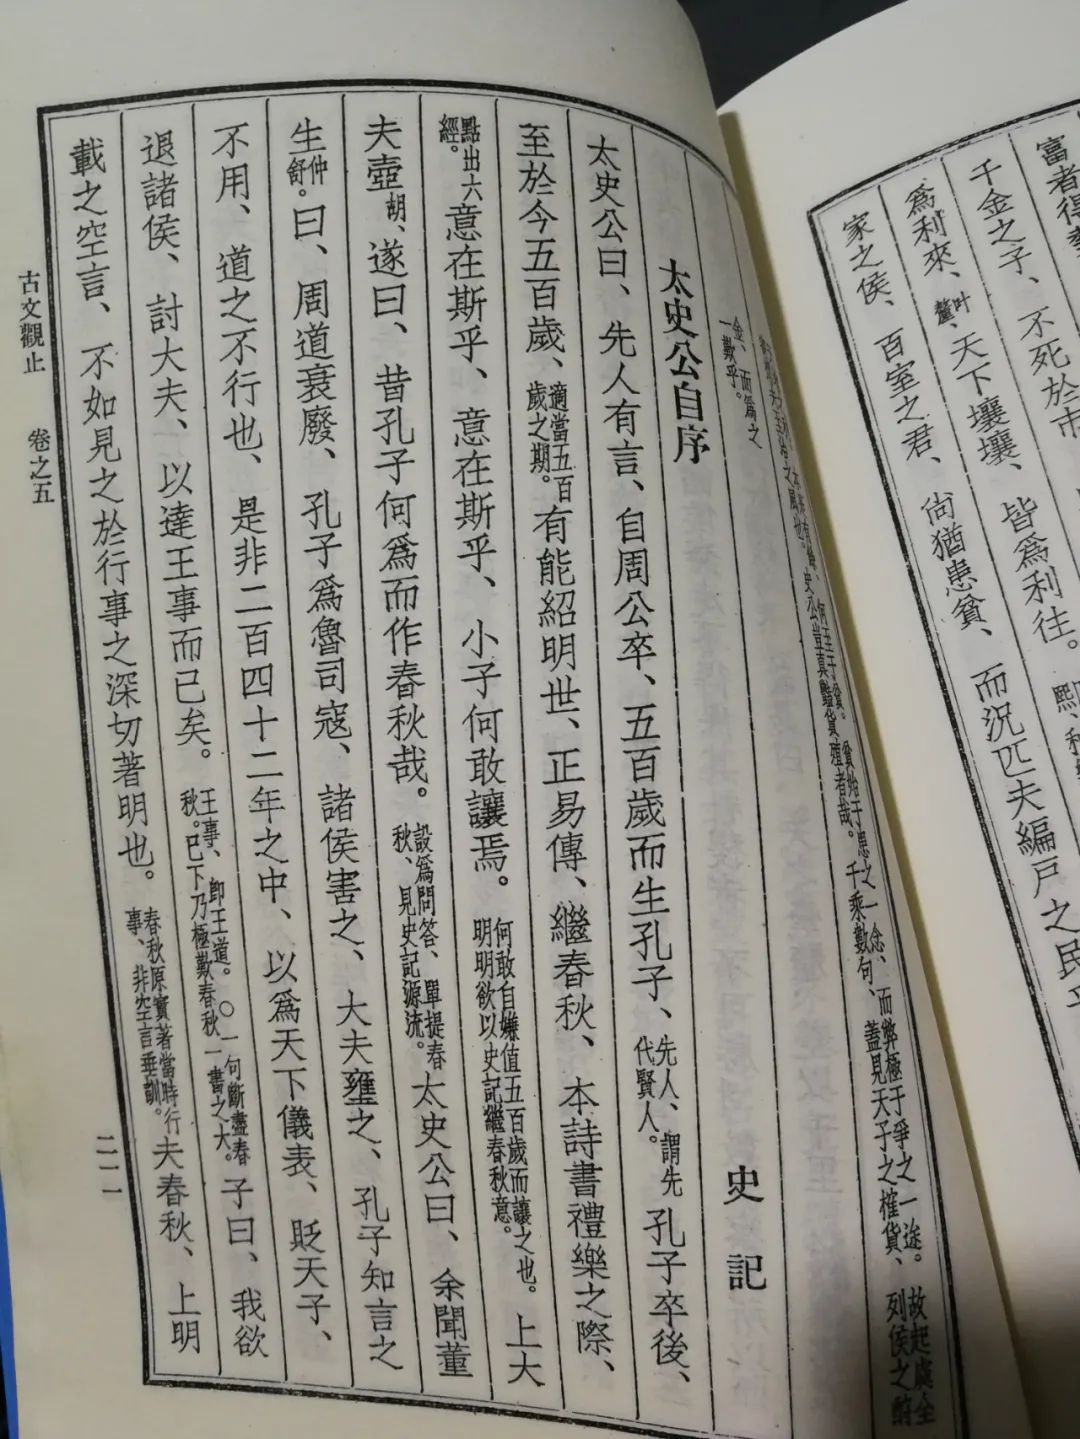 富者得
千金之子、不死於市
爲利來、叶釐、天下壤壤、皆爲利往。熙、
家之侯、百室之君、尙猶患貧、而況匹夫編戶之民
太史公自序
史記
太史公曰、先人有言、自周公卒、五百歲而生孔子、先人、謂先代賢人。孔子卒後、
至於今五百歲、適當五百歲之期。有能紹明世、正易傳、繼春秋、本詩書禮樂之際、
點出六經。意在斯乎、意在斯乎、小子何敢讓焉。何敢自嫌值五百歲而讓之也。明明欲以史記繼春秋意。上大
夫壺胡、遂曰、昔孔子何爲而作春秋哉。設爲問答、單提春秋、見史記源流。太史公曰、余聞董
生仲舒。曰、周道衰廢、孔子爲魯司寇、諸侯害之、大夫壅之、孔子知言之
不用、道之不行也、是非二百四十二年之中、以爲天下儀表、貶天子、
退諸侯、討大夫、以達王事而已矣。王事、卽王道。〇一句斷盡春秋。已下乃極歎春秋一書之大。子曰、我欲
載之空言、不如見之於行事之深切著明也。春秋原實著當時行事、非空言垂訓。夫春秋、上明
古文觀止 卷之五
二一一